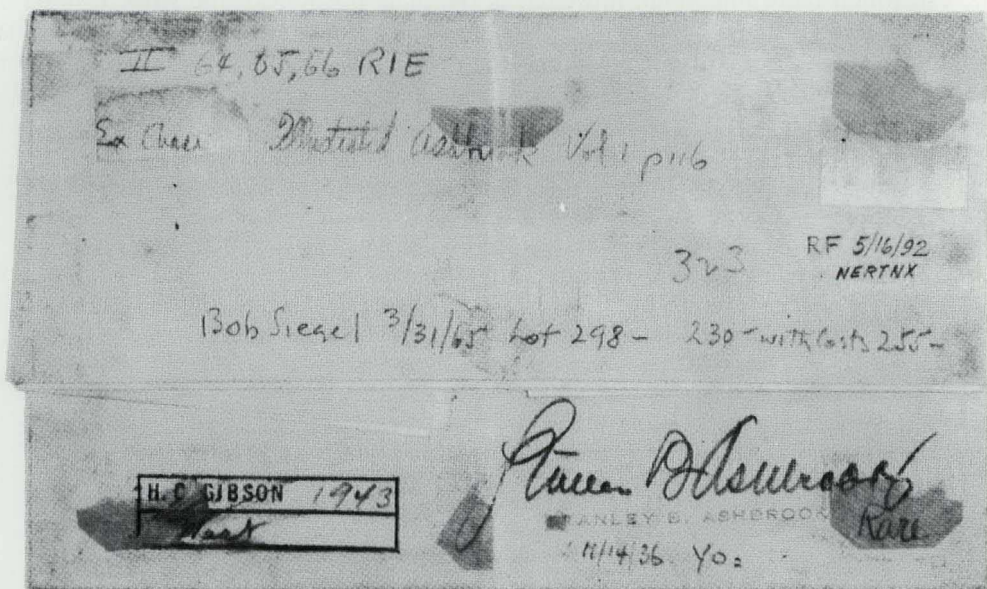 II 64, 65, 66 RIE
Ex Chase Illustrated Ashbrook Vol 1 p116
323
RF 5/16/92
NERTNX
Bob Siegel 3/31/65 Lot 298 - 230 - with Costs 255 -
H. C. GIBSON 1943
Stanley B. Ashbrook
STANLEY B. ASHBROOK
Rare
11/14/36